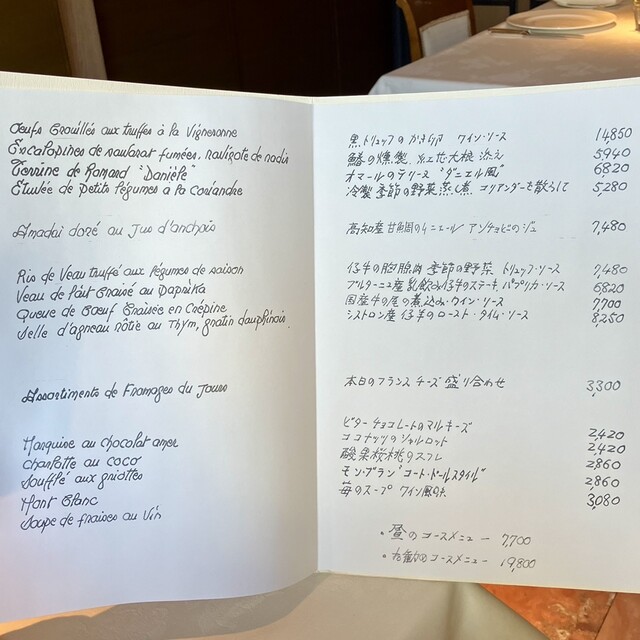 Œufs Brouillés aux truffes à la Vigneronne
Escalopines de sawarat fumées, navigote de nadis
Terrine de Homard "Danièle"
Etuvée de Petits légumes à la Coriandre
Amadai doré au Jus d'anchois
Ris de Veau truffé aux légumes de saison
Veau de lait Braisé au Paprika
Queue de Bœuf Braisée en Crépine
Selle d'agneau rôtie au Thym, gratin dauphinois.
Assortiments de Fromages du Jours
Marquise au chocolat amer
Charlotte au coco
Soufflé aux griottes
Mont Blanc
Soupe de fraises au Vin
黒トリュフのかき卵 ワイン・ソース 14,850
鰆の燻製 紅芯大根添え 5,940
オマールのテリース "ダニエル風" 6820
冷製 季節の野菜蒸し煮 コリアンダーを散らして 5,280
高知産 甘鯛のムニエール/アンチョビのジュ 7,480
仔牛の胸腺肉 季節の野菜 トリュフ・ソース 7,480
ブルターニュ産 乳飲み仔牛のステーキ パプリカ・ソース 6820
国産牛の尾の煮込み・ワイン・ソース 7,700
シストロン産 仔羊のロースト・タイム・ソース 8,250
本日のフランスチーズ 盛り合わせ 3,300
ビターチョコレートのマルキーズ 2,420
ココナッツのシャルロット 2,420
酸果桜桃のスフレ 2860
モン・ブラン"コート・ドールスタイル" 2860
苺のスープ ワイン風味 3,080
・昼のコースメニュー 7,700
・お勧のコースメニュー 19,800